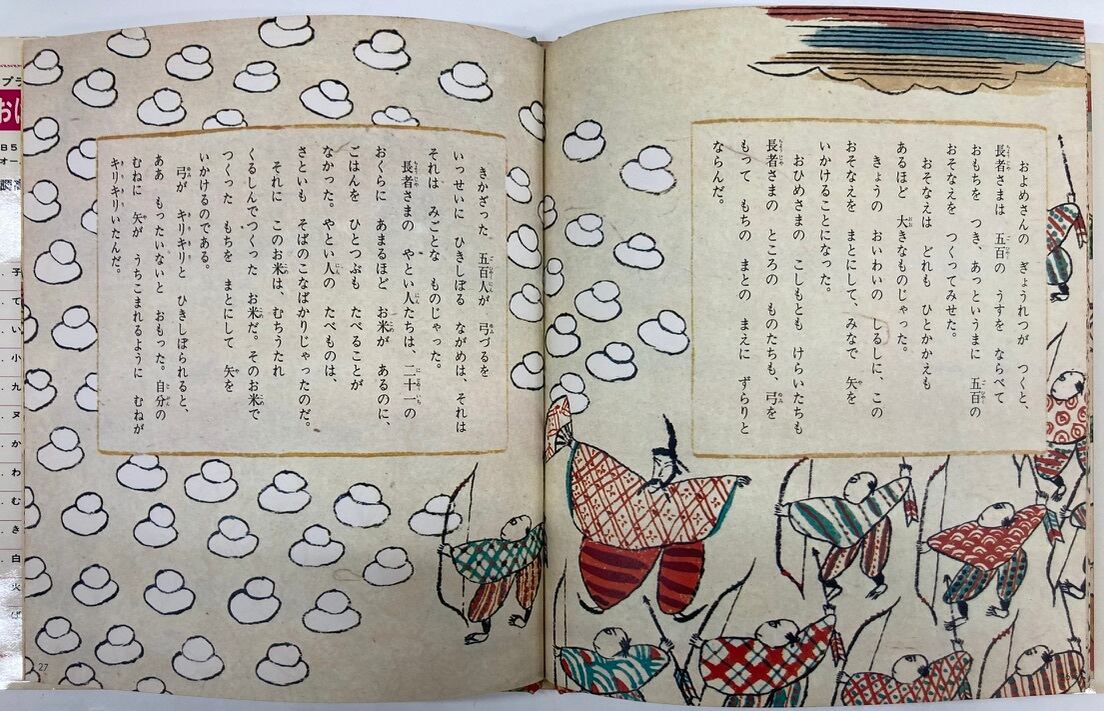 およめさんの ぎょうれつが つくと、
長者さまは 五百の うすを ならべて
おもちを つき、あっというまに 五百の
おそなえを つくってみせた。
おそなえは どれも ひとかかえも
あるほど 大きなものじゃった。
きょうの おいわいの しるしに、この
おそなえを まとにして、みなで 矢を
いかけることになった。
おひめさまの こしもとも けらいたちも
長者さまの ところの ものたちも、弓を
もって もちの まとの まえに ずらりと
ならんだ。
きかざった 五百人が 弓づるを
いっせいに ひきしぼる ながめは、それは
それは みごとな ものじゃった。
長者さまの やとい人たちは、二十一の
おくらに あまるほど お米が あるのに、
ごはんを ひとつぶも たべることが
なかった。やとい人の たべものは、
さといも そばのこなばかりじゃったのだ。
それに このお米は、むちうたれ
くるしんでつくった お米だ。そのお米で
つくった もちを まとにして 矢を
いかけるのである。
弓が キリキリと ひきしぼられると、
ああ もったいないと おもった。自分の
むねに 矢が うちこまれるように むねが
キリキリいたんだ。
27
プラ
おに
B5
オー
子
て
い
小
九
ヌ
か
わ
む
き
白
火